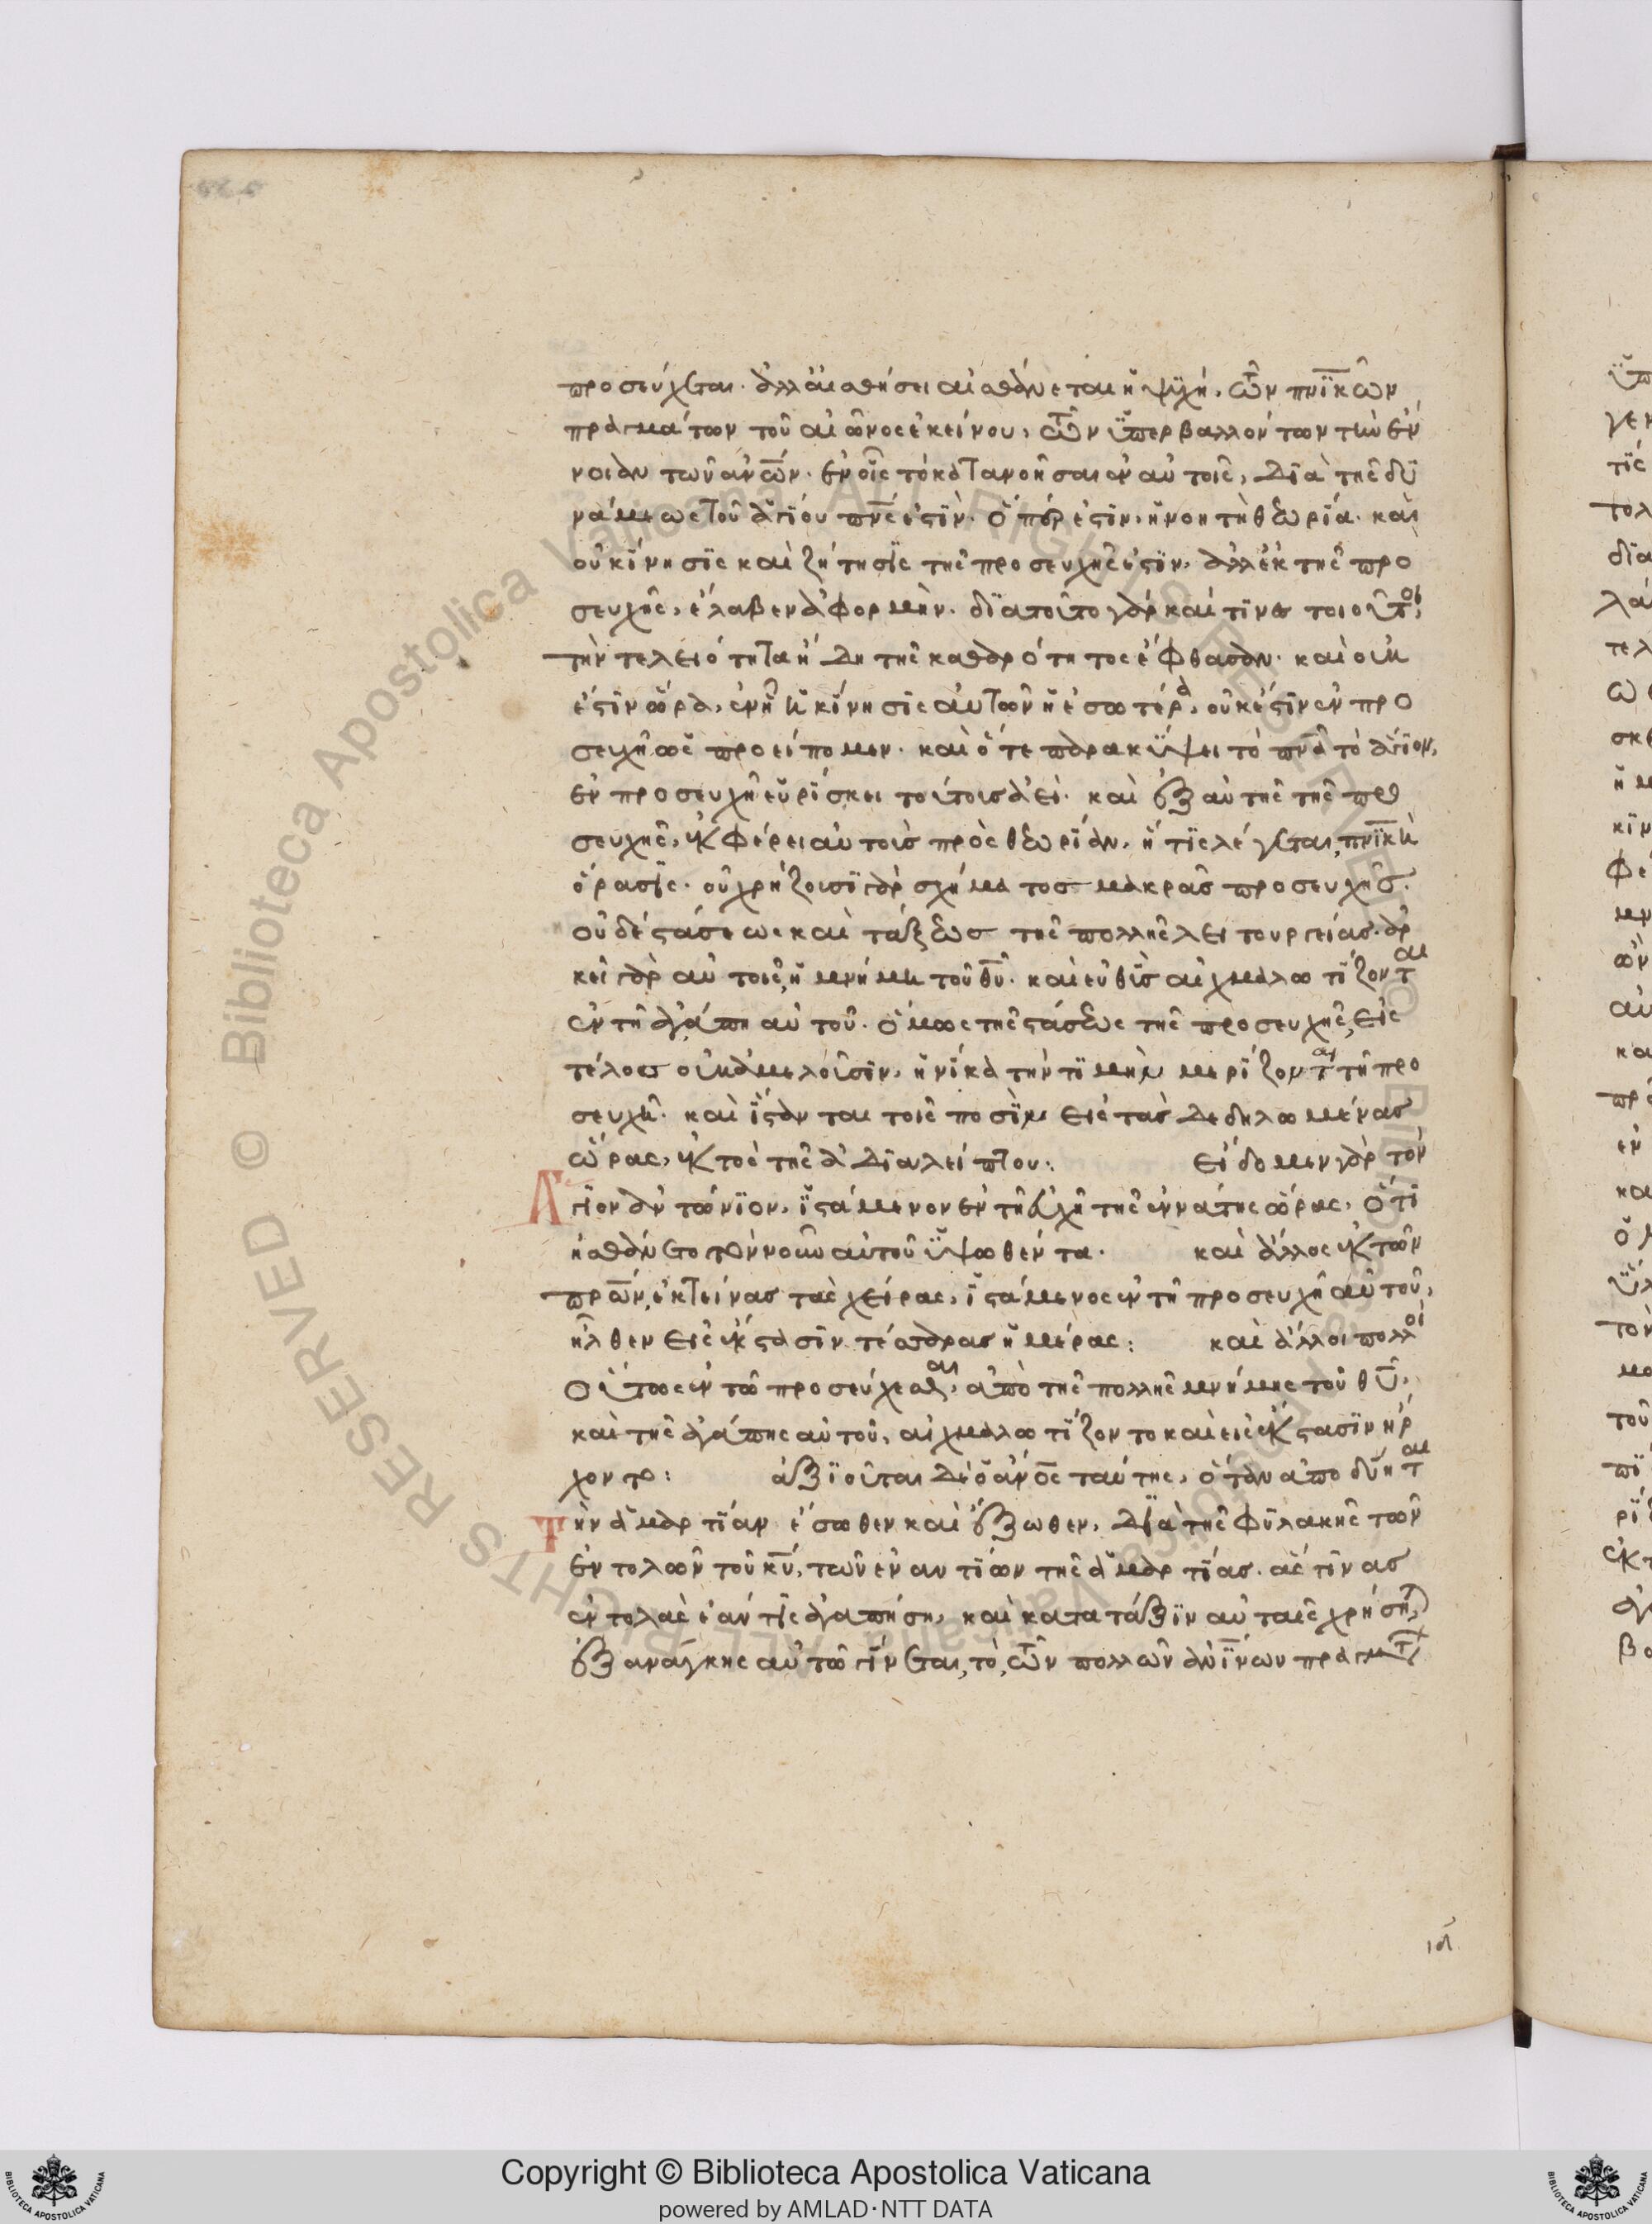 προσεύχεται. ἀλλ' αἰσθήσει αἰσθάνεται ἡ ψυχή, τῶν πν̅ϊκῶν
πραγμάτων τοῦ αἰῶνος ἐκείνου, τῶν ὑπερβαλλόντων τὴν ἔν
νοιαν τῶν ἀν̅ω̅ν. ἐν οἷς τὸ κατανοῆσαι ἐν αὐτοῖς, διὰ τῆς δυ
νάμεως τοῦ ἁγίου πν̅ς ἐστὶν. ὅπερ ἐστὶν, ἡ νοητὴ θεωρία. καὶ
οὐ κίνησις καὶ ζήτησις τῆς προσευχῆς ἐστὶν, ἀλλ' ἐκ τῆς προ
σευχῆς, ἔλαβεν ἀφορμὴν. διατοῦτο γὰρ καί τινες τοιοῦτοι,
τὴν τελειότητα ἤδη τῆς καθαρότητος ἔφθασαν. καὶ οὐκ
ἔστιν ὥρα, ἐν ᾗ ἡ κίνησις αὐτῶν ἡ ἐσωτέρα, οὐκ ἔστιν ἐν προ
σευχῇ ὡς προείπομεν. καὶ ὅτε παρακύψει τὸ πν̅α τὸ ἅγιον,
ἐν προσευχῇ εὑρίσκει τούτους ἀεί. καὶ ἐξ αὐτῆς τῆς προ
σευχῆς, ἐκφέρει αὐτοὺς πρὸς θεωρίαν, ἥτις λέγεται, πν̅ϊκὴ
ὅρασις. οὐ χρήζουσι γὰρ σχήματος μακρᾶς προσευχῆς.
οὐδὲ στάσεως καὶ τάξεως τῆς πολλῆς λειτουργείας. ἀρ
κεῖ γὰρ αὐτοῖς, ἡ μνήμη τοῦ θ̅υ̅. καὶ εὐθὺς αἰχμαλωτίζονται
ἐν τῇ ἀγάπῃ αὐτοῦ. ὅμως τῆς στάσεως τῆς προσευχῆς, εἰς
τέλος οὐκ ἀμελοῦσιν, ἡνίκα τὴν τιμὴν μερίζονται τῇ προ
σευχῇ. καὶ ἵστανται τοῖς ποσὶν εἰς τὰς δεδηλωμένας
ὥρας, ἐκτὸς τῆς ἀδιαλείπτου: εἴδομεν γὰρ τὸν
Ἅγιον ἀντώνιον, ἱστάμενον ἐν τῇ εὐχῇ τῆς ἐννάτης ὥρας, ὅτι
ἠσθάνετο τὸν νοῦν αὐτοῦ ὑψωθέντα. καὶ ἄλλος ἐκ τῶν
πρ̅ω̅ν, ἐκτείνας τὰς χεῖρας, ἱστάμενος ἐν τῇ προσευχῇ αὐτοῦ,
ἦλθεν εἰς ἔκστασιν τέσσαρας ἡμέρας: καὶ ἄλλοι πολλοὶ
οὕτως ἐν τῷ προσεύχεσθαι, ἀπὸ τῆς πολλῆς μνήμης τοῦ θ̅υ̅,
καὶ τῆς ἀγάπης αὐτοῦ, αἰχμαλωτίζοντο καὶ εἰς ἔκστασιν ἤρ
χοντο: ἀξιοῦται δὲ ὁ ἄν̅ο̅ς ταύτης, ὅταν αποδύηται
Τὴν ἁμαρτίαν ἔσωθεν καὶ ἔξωθεν, διὰ τῆς φυλακῆς τῶν
ἐντολῶν τοῦ κ̅υ̅, τῶν ἐναντίων τῆς ἁμαρτίας. ἅς τινας
ἐντολὰς ἐάν τις ἀγαπήσῃ, καὶ κατὰ τάξιν αὐταῖς χρήσηται,
ἐξ ἀνάγκης αὐτῷ γίνεται, τὸ, τῶν πολλῶν ἀν̅ΐνων πραγμάτων
ιδ